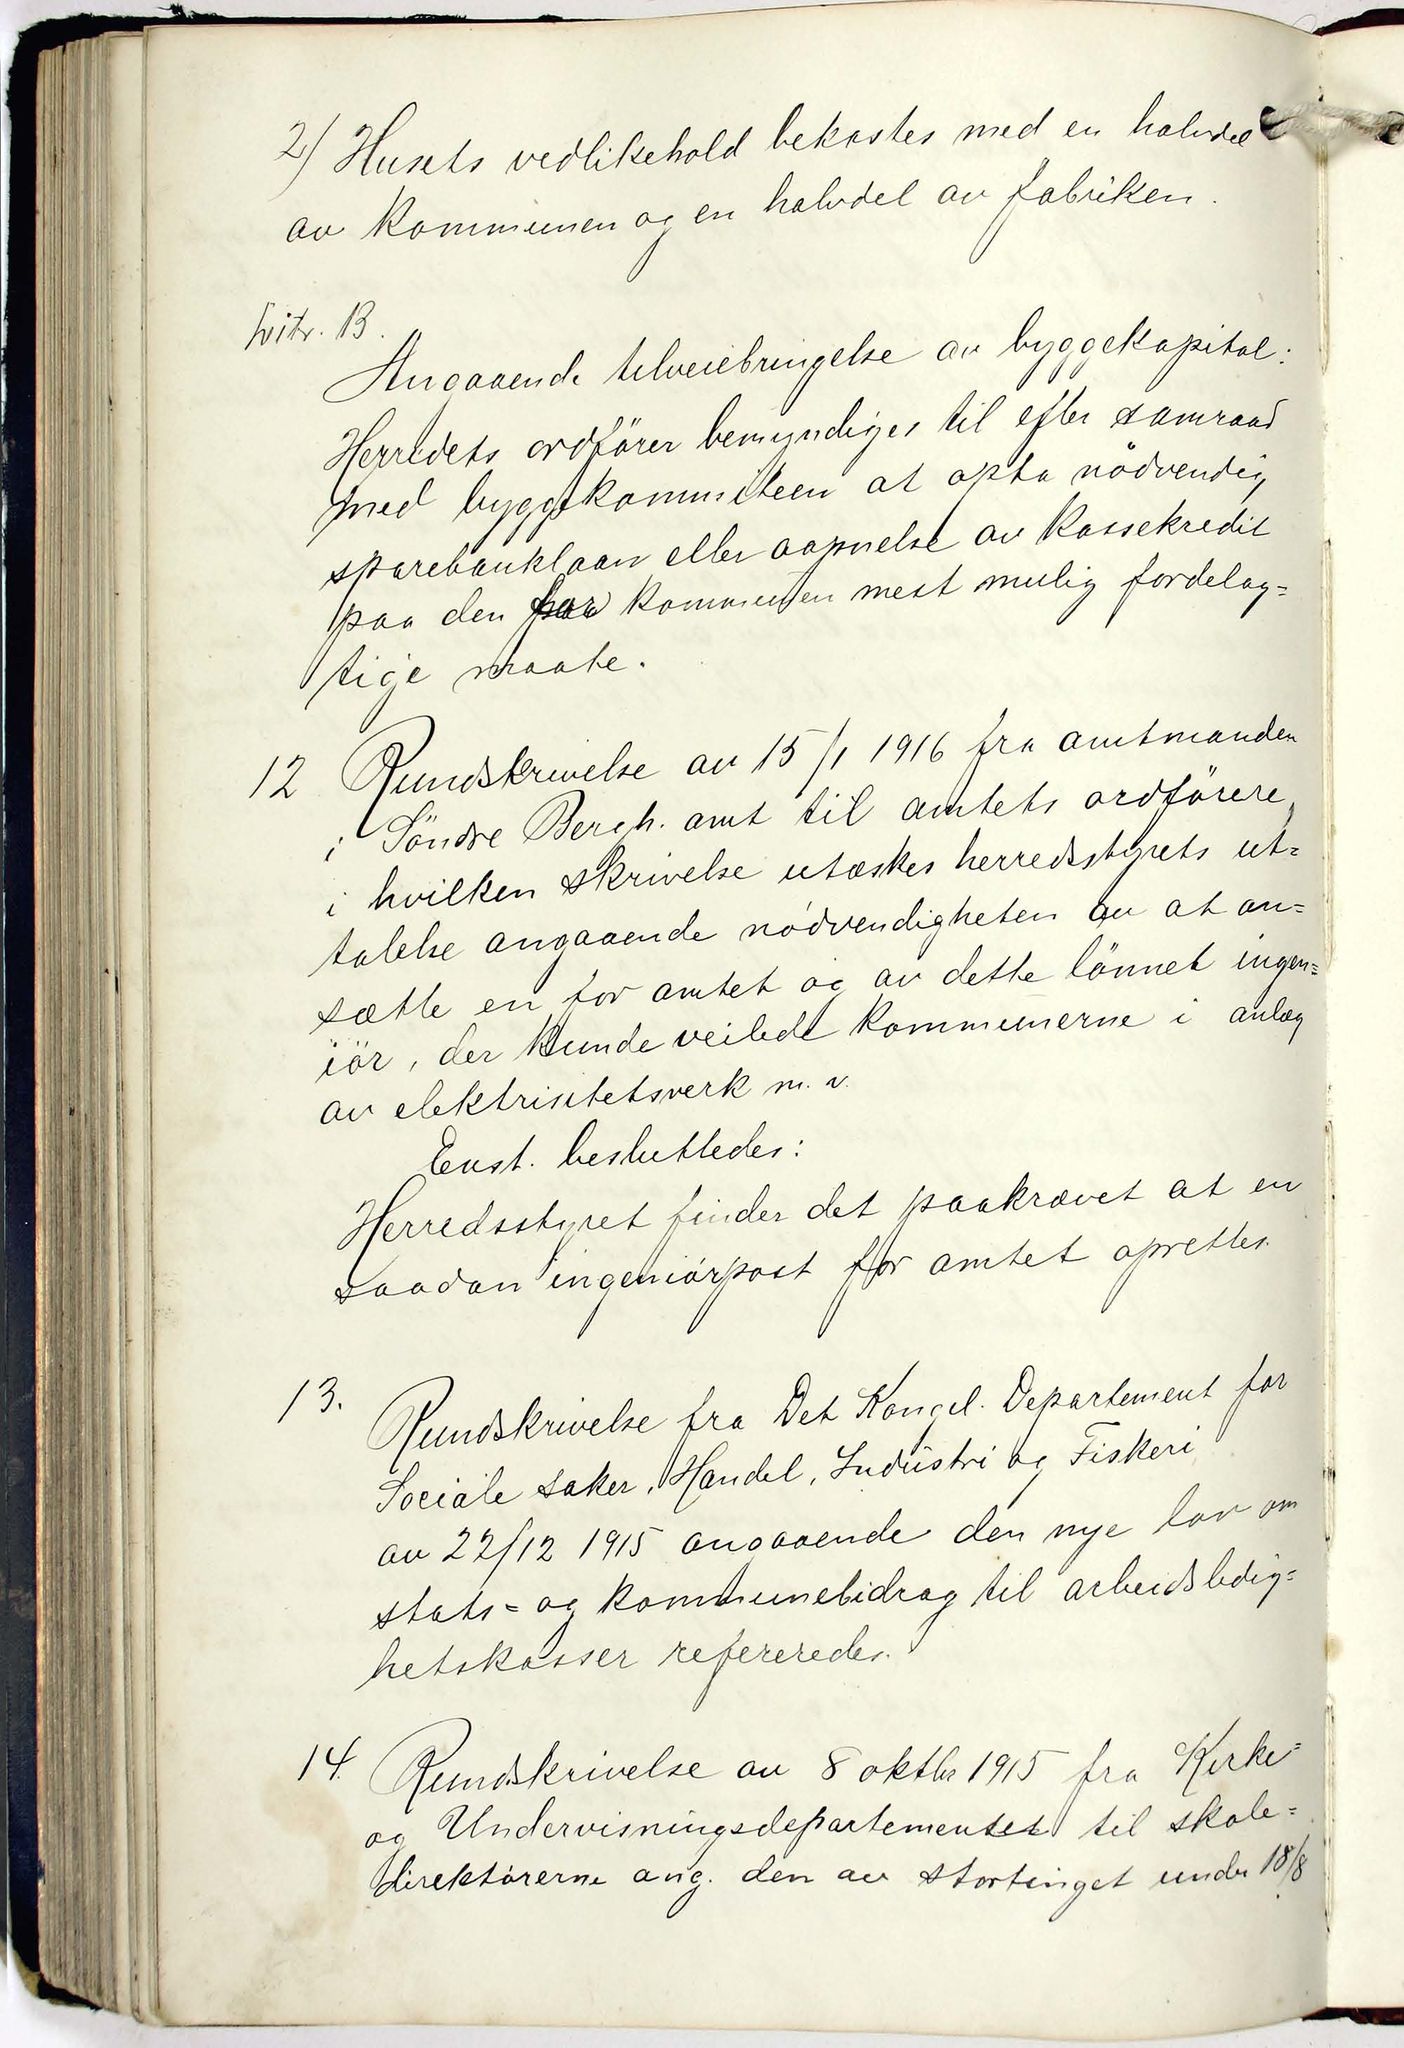 2) Husets vedlikehold bekostes med en halvdel
av kommunen og en halvdel av fabriken.
Litr. B.
Angaaende tilveiebringelse av byggekapital:
Herredets ordförer bemyndiges til efter samraad
med byggekommiteen at opta nödvendig
sparebanklaan eller aapnelse av kassekredit
paa den for kommunen mest mulig fordelag=
tige maate.
12 Rundskrivelse av 15/1 1916 fra amtmanden
i Söndre Bergh. amt til amtets ordförere,
i hvilken skrivelse utæskes herredsstyrets ut=
talelse angaaende nödvendigheten av at an=
sætte en for amtet og av dette lönnet ingen=
iör, der kunde veilede kommunerne i anlæg
av elektrisitetsverk m. v.
Enst. besluttedes:
Herredsstyret finder det paakrævet at en
saadan ingeniörpost for amtet oprettes.
13. Rundskrivelse fra Det Kongel. Departement for
Sociale saker, Handel, Industri og Fiskeri
av 22/12 1915 angaaende den nye lov om
stats= og kommunebidrag til arbeidsledig=
hetskasser refereredes.
14. Rundskrivelse av 8 oktbr 1915 fra Kirke=
og Undervisningsdepartementet til skole=
direktörerne ang. den av stortinget under 18/8